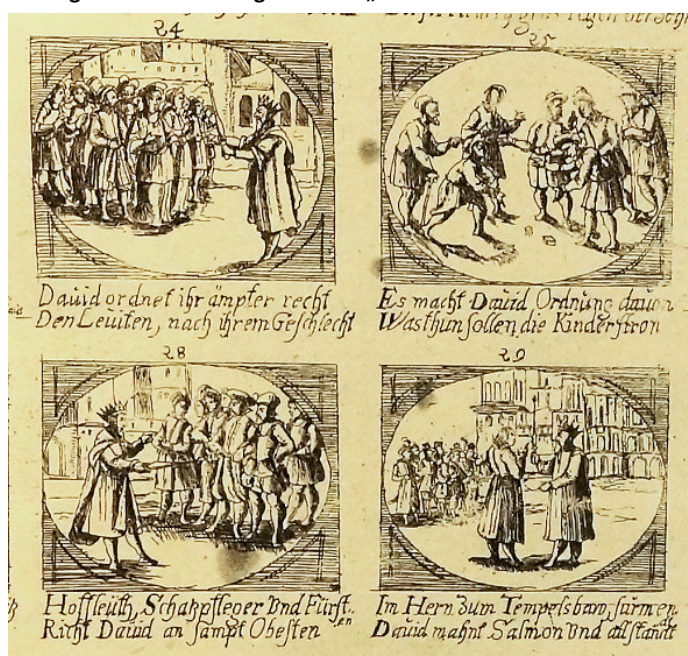 24
25
Dauid ordnet ihr ämpter recht
Den Leuiten, nach ihrem Geschlecht
Es macht Dauid Ordnung dauon
Was thun sollen die Kinder
28
29
Hoffleuth, Schatzpfleger Vnd Fürst
en
Richt Dauid an sampt Obesten
Im Hern Zum Tempelsbaw,
Dauid mahnt Salmon Vnd all standt